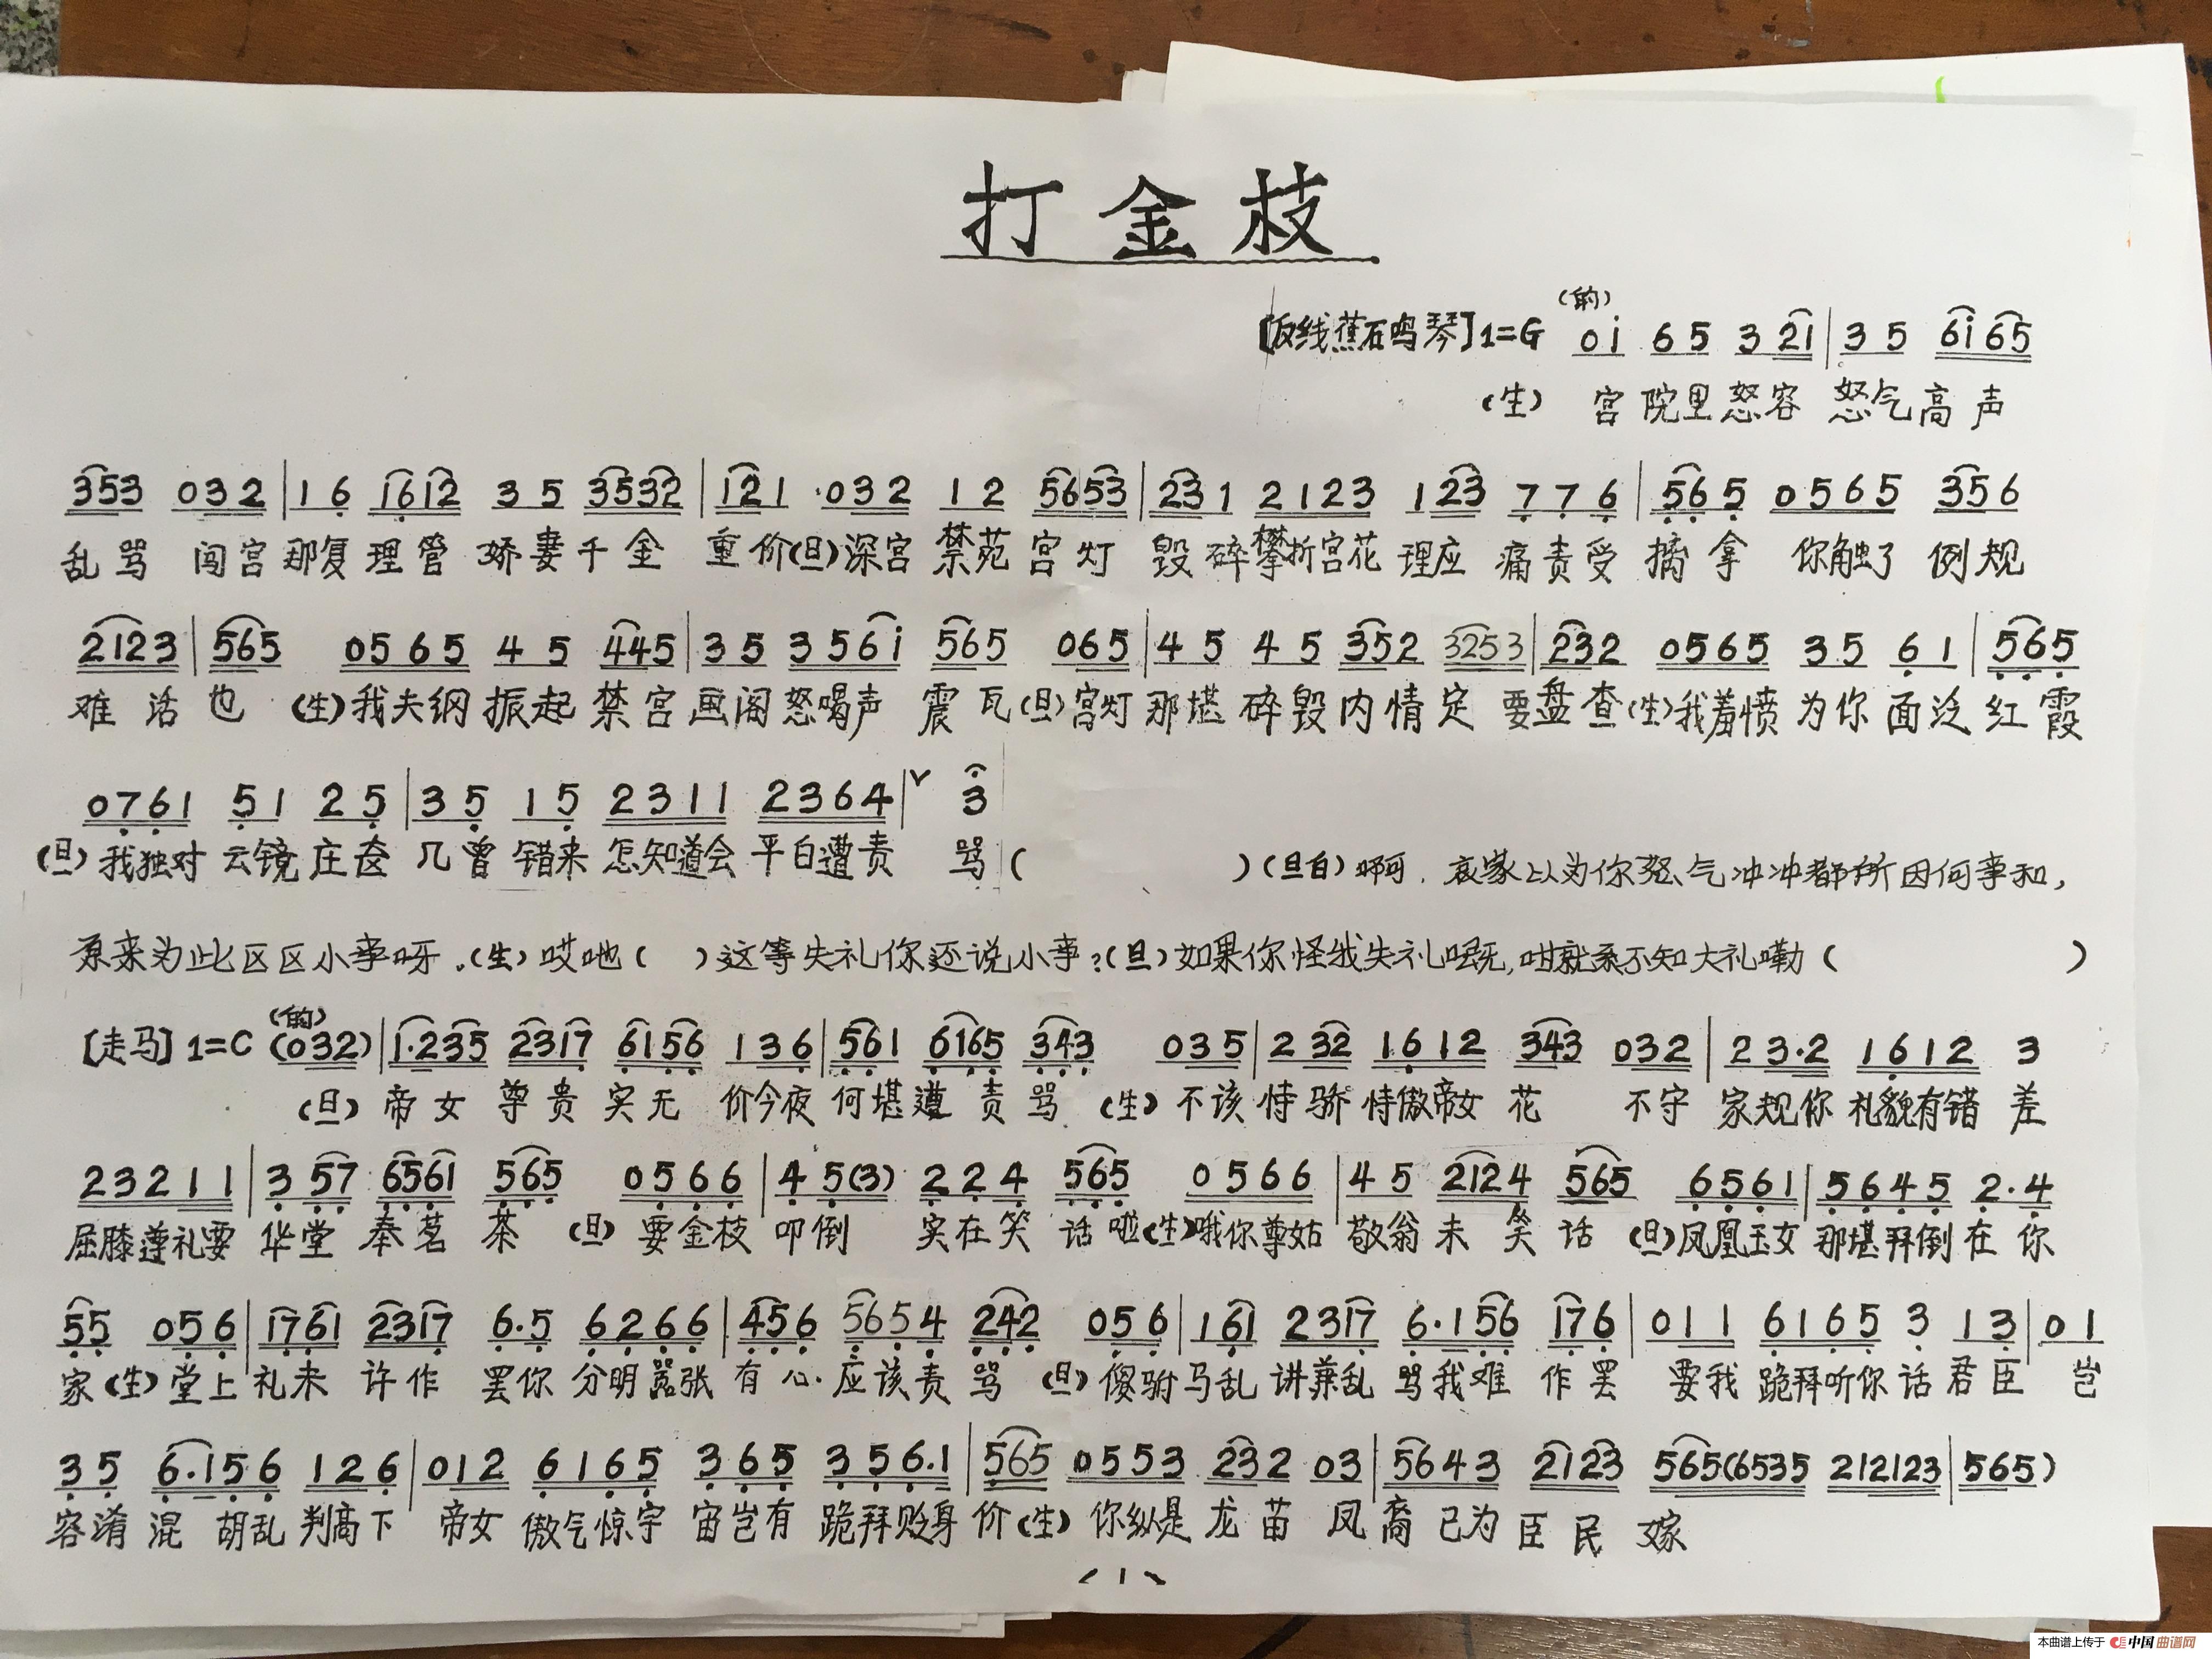 打金枝
(的)
[反线蕉石鸣琴] 1=G 0i 65 3 21 | 35 6i65
(生) 宫院里怒容 怒气高声
353 032 | 16 1612 35 3532 | 121 ·032 12 5653 | 231 2123 123 776 | 565 0565 356
乱骂 闯宫那复理管 娇妻千金 重价(旦)深宫 禁苑宫灯 毁碎攀折宫花 理应 痛责受 摘拿 你触了 例规
2123 | 565 0565 45 445 | 35 356i 565 065 | 45 45 352 3253 | 232 0565 35 61 | 565
难活也 (生)我夫纲 振起 禁宫画阁怒喝声 震瓦(旦)宫灯那堪 碎毁内情定 要盘查(生)我羞愤 为你 面泛红霞
0761 51 25 | 35 15 2311 2364 | ˅ 3
(旦)我独对 云镜庄奁 几曾 错来 怎知道会 平白遭责 骂( )(旦白)啊,哀家以为你怒气冲冲都所因何事和,
原来为此区区小事呀。(生)哎吔( )这等失礼你还说小事?(旦)如果你怪我失礼呢,咁就系不知大礼嘞( )
(的)
[走马] 1=C (032) | 1·235 2317 6156 136 | 561 6165 343 035 | 2 32 1612 343 032 | 2 3·2 1612 3
(旦) 帝女 尊贵 实无 价今夜 何堪遭 责骂 (生)不该恃骄 恃傲帝女 花 不守 家规你 礼貌有错 差
23211 | 3 57 6561 565 0566 | 4 5(3) 224 565 0566 | 45 2124 565 6561 | 5645 2·4
屈膝遵礼要 华堂 奉茗 茶 (旦) 要金枝 叩倒 实在笑 话啦(生)哦你尊姑 敬翁未 笑话 (旦)凤凰玉女 那堪拜倒 在你
55 056 | 1761 2317 6·5 6266 | 456 5654 242 056 | 161 2317 6·156 176 | 011 6165 3 13 | 01
家(生)堂上 礼未 许作 罢你 分明嚣张 有心.应该责 骂 (旦)傻驸马乱 讲兼乱 骂我难 作罢 要我 跪拜听你 话 君臣 岂
35 6·156 126 | 012 6165 365 356·1 | 565 0553 232 03 | 5643 2123 565(6535 212123 | 565)
容淆 混 胡乱 判高下 帝女 傲气惊宇 宙岂有 跪拜贬身 价(生) 你纵是 龙苗 凤裔已为 臣民 嫁
(1)
本曲谱上传于 中国曲谱网